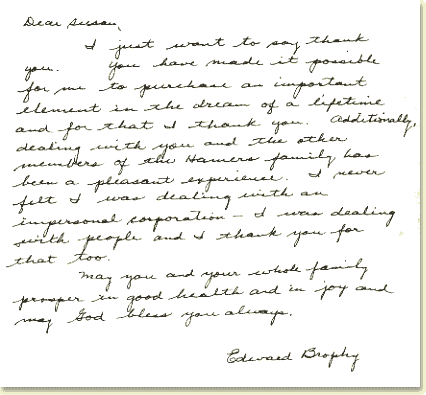 Dear Susan,
I just want to say thank
you. You have made it possible
for me to purchase an important
element in the dream of a lifetime
and for that I thank you. Additionally,
dealing with you and the other
members of the Hamers family has
been a pleasant experience. I never
felt I was dealing with an
impersonal corporation – I was dealing
with people and I thank you for
that too.
May you and your whole family
prosper in good health and in joy and
may God bless you always.
Edward Brophy